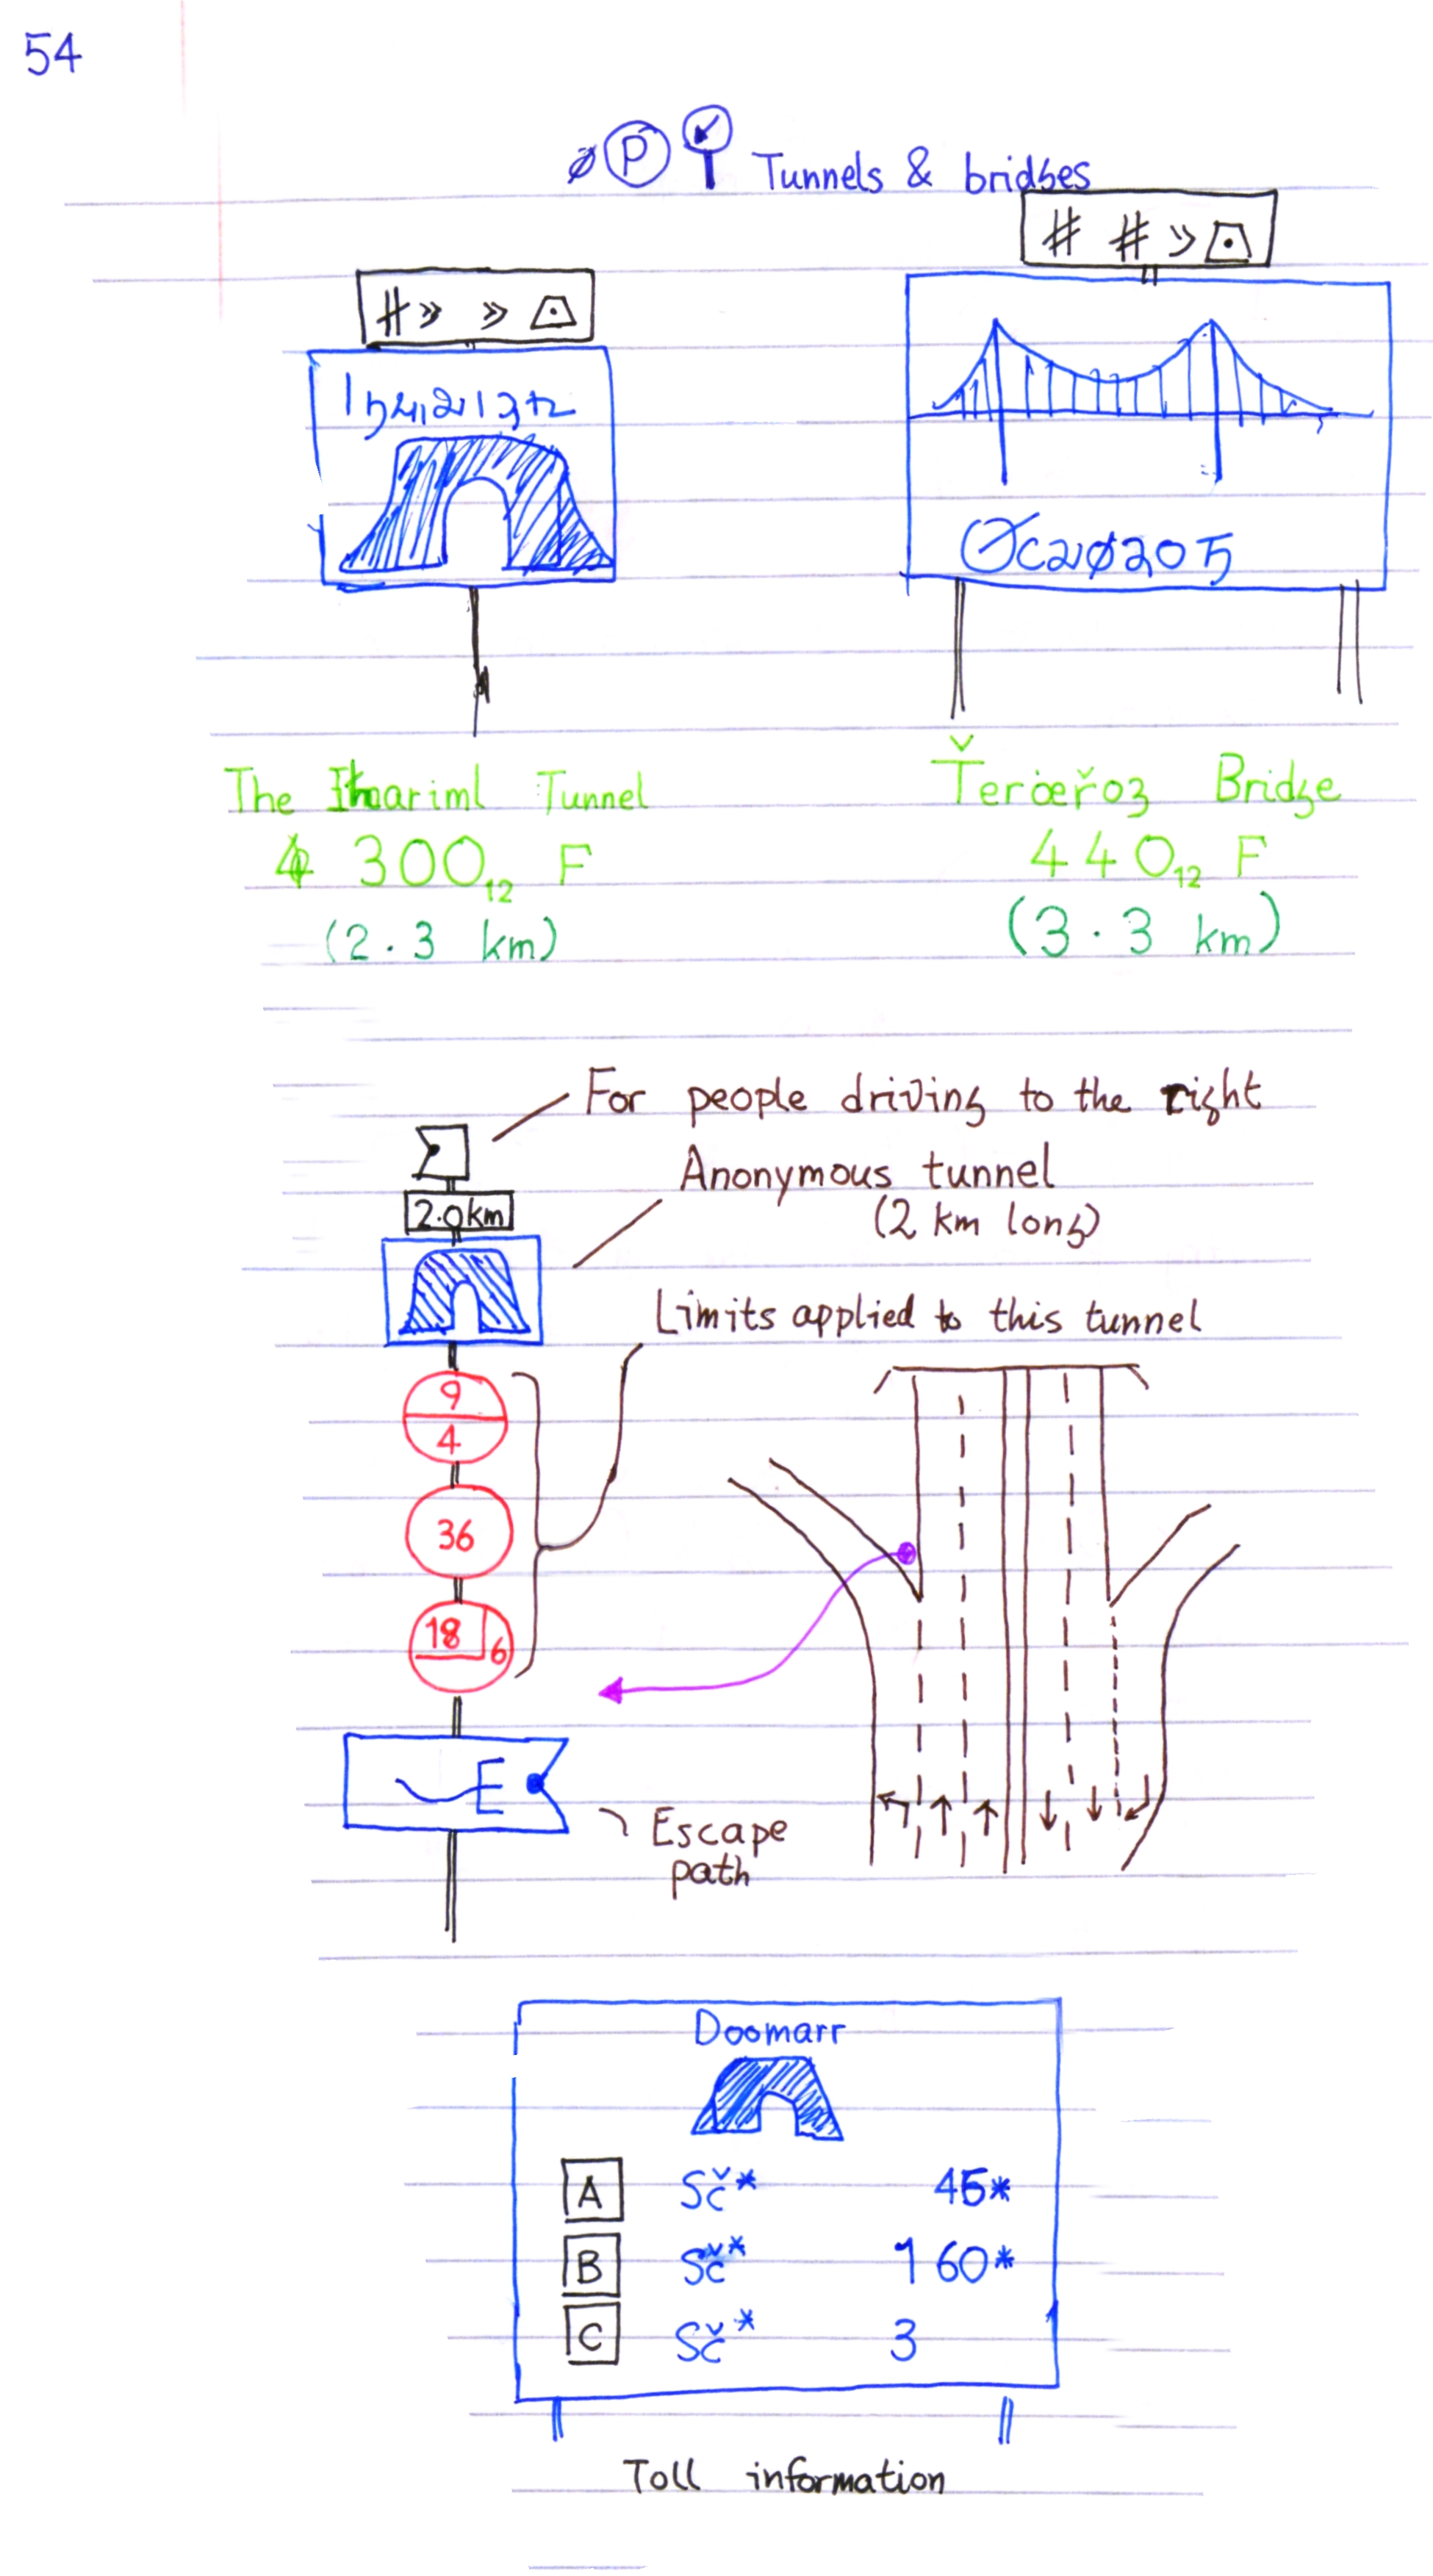 54
Ø P Tunnels & bridges
The Ithariml Tunnel
300₁₂ F
(2.3 km)
Bridge
440₁₂ F
(3.3 km)
For people driving to the right
2.0km
Anonymous tunnel
(2 km long)
Limits applied to this tunnel
9
4
36
18 6
E
Escape
path
Doomarr
A Sč* 45*
B Sč* 160*
C Sč* 3
Toll information